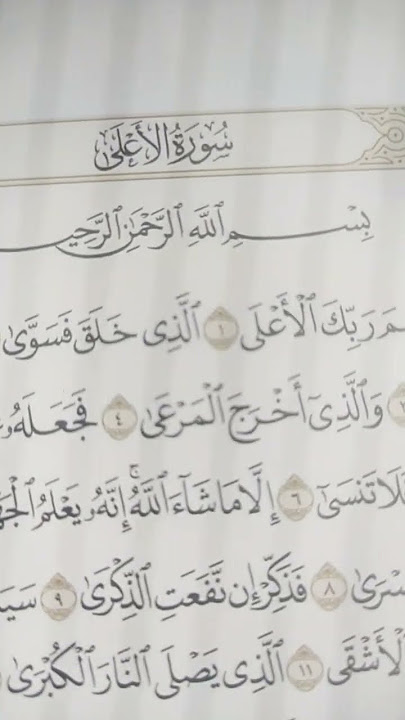 سُورَةُ الأَعْلَىٰ
بِسْمِ ٱللَّهِ ٱلرَّحْمَٰنِ ٱلرَّحِي
مَ رَبِّكَ ٱلْأَعْلَى ١ ٱلَّذِى خَلَقَ فَسَوَّىٰ
وَٱلَّذِىٓ أَخْرَجَ ٱلْمَرْعَىٰ ٤ فَجَعَلَهُۥ
فَلَا تَنسَىٰٓ ٦ إِلَّا مَا شَآءَ ٱللَّهُۚ إِنَّهُۥ يَعْلَمُ ٱلْجَهْ
سْرَىٰ ٨ فَذَكِّرْ إِن نَّفَعَتِ ٱلذِّكْرَىٰ ٩ سَيَ
ٱلْأَشْقَى ١١ ٱلَّذِى يَصْلَى ٱلنَّارَ ٱلْكُبْرَىٰ